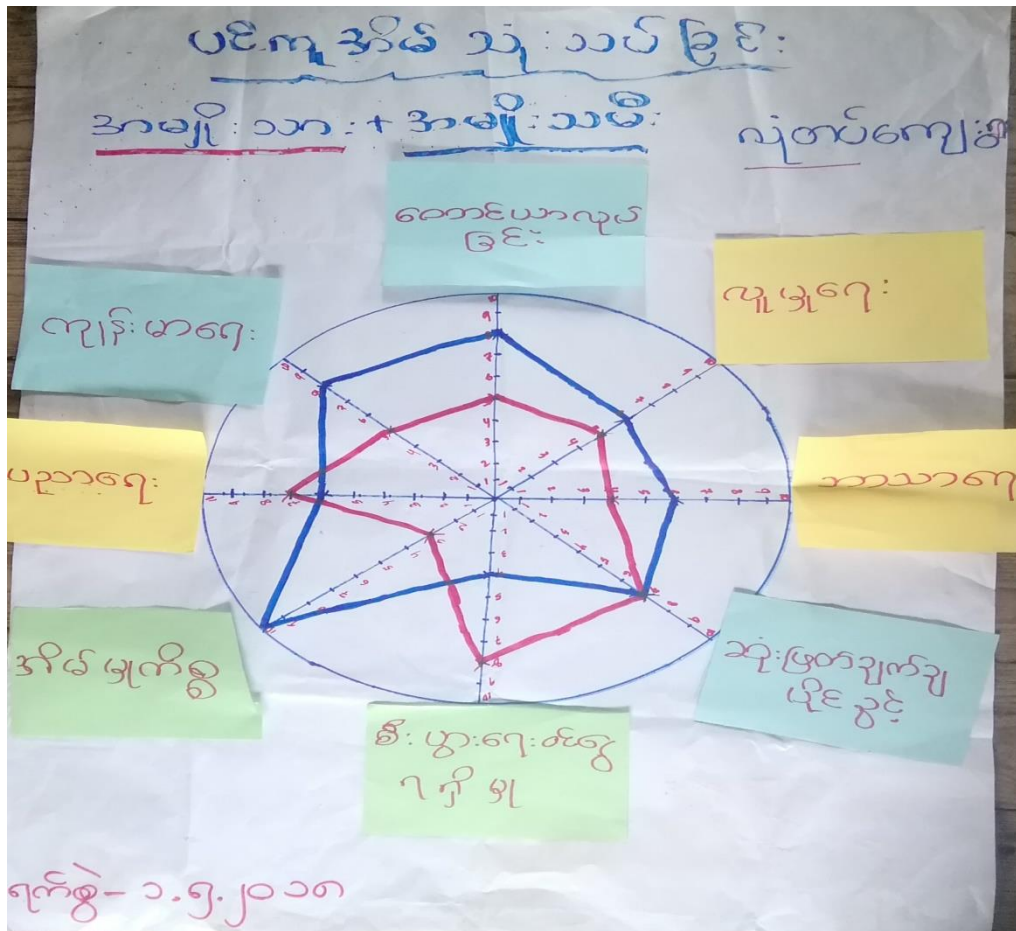 ပင့်ကူအိမ် သုံးသပ်ခြင်း
အာမျိုးသား + အာမျိုးသမီး
လုံတပ်ကျေးရွာ
တောင်ယာလုပ်
ခြင်း
လူမှုရေး
ကျန်းမာရေး
ပညာရေး
ဘာသာရေ
အိမ်မှုကိစ္စ
ဆုံးဖြတ်ချက်ချ
ပိုင်ခွင့်
စီးပွားရေးဝင်ငွေ
ရရှိမှု
ရက်စွဲ - ၁.၅.၂၀၁၈